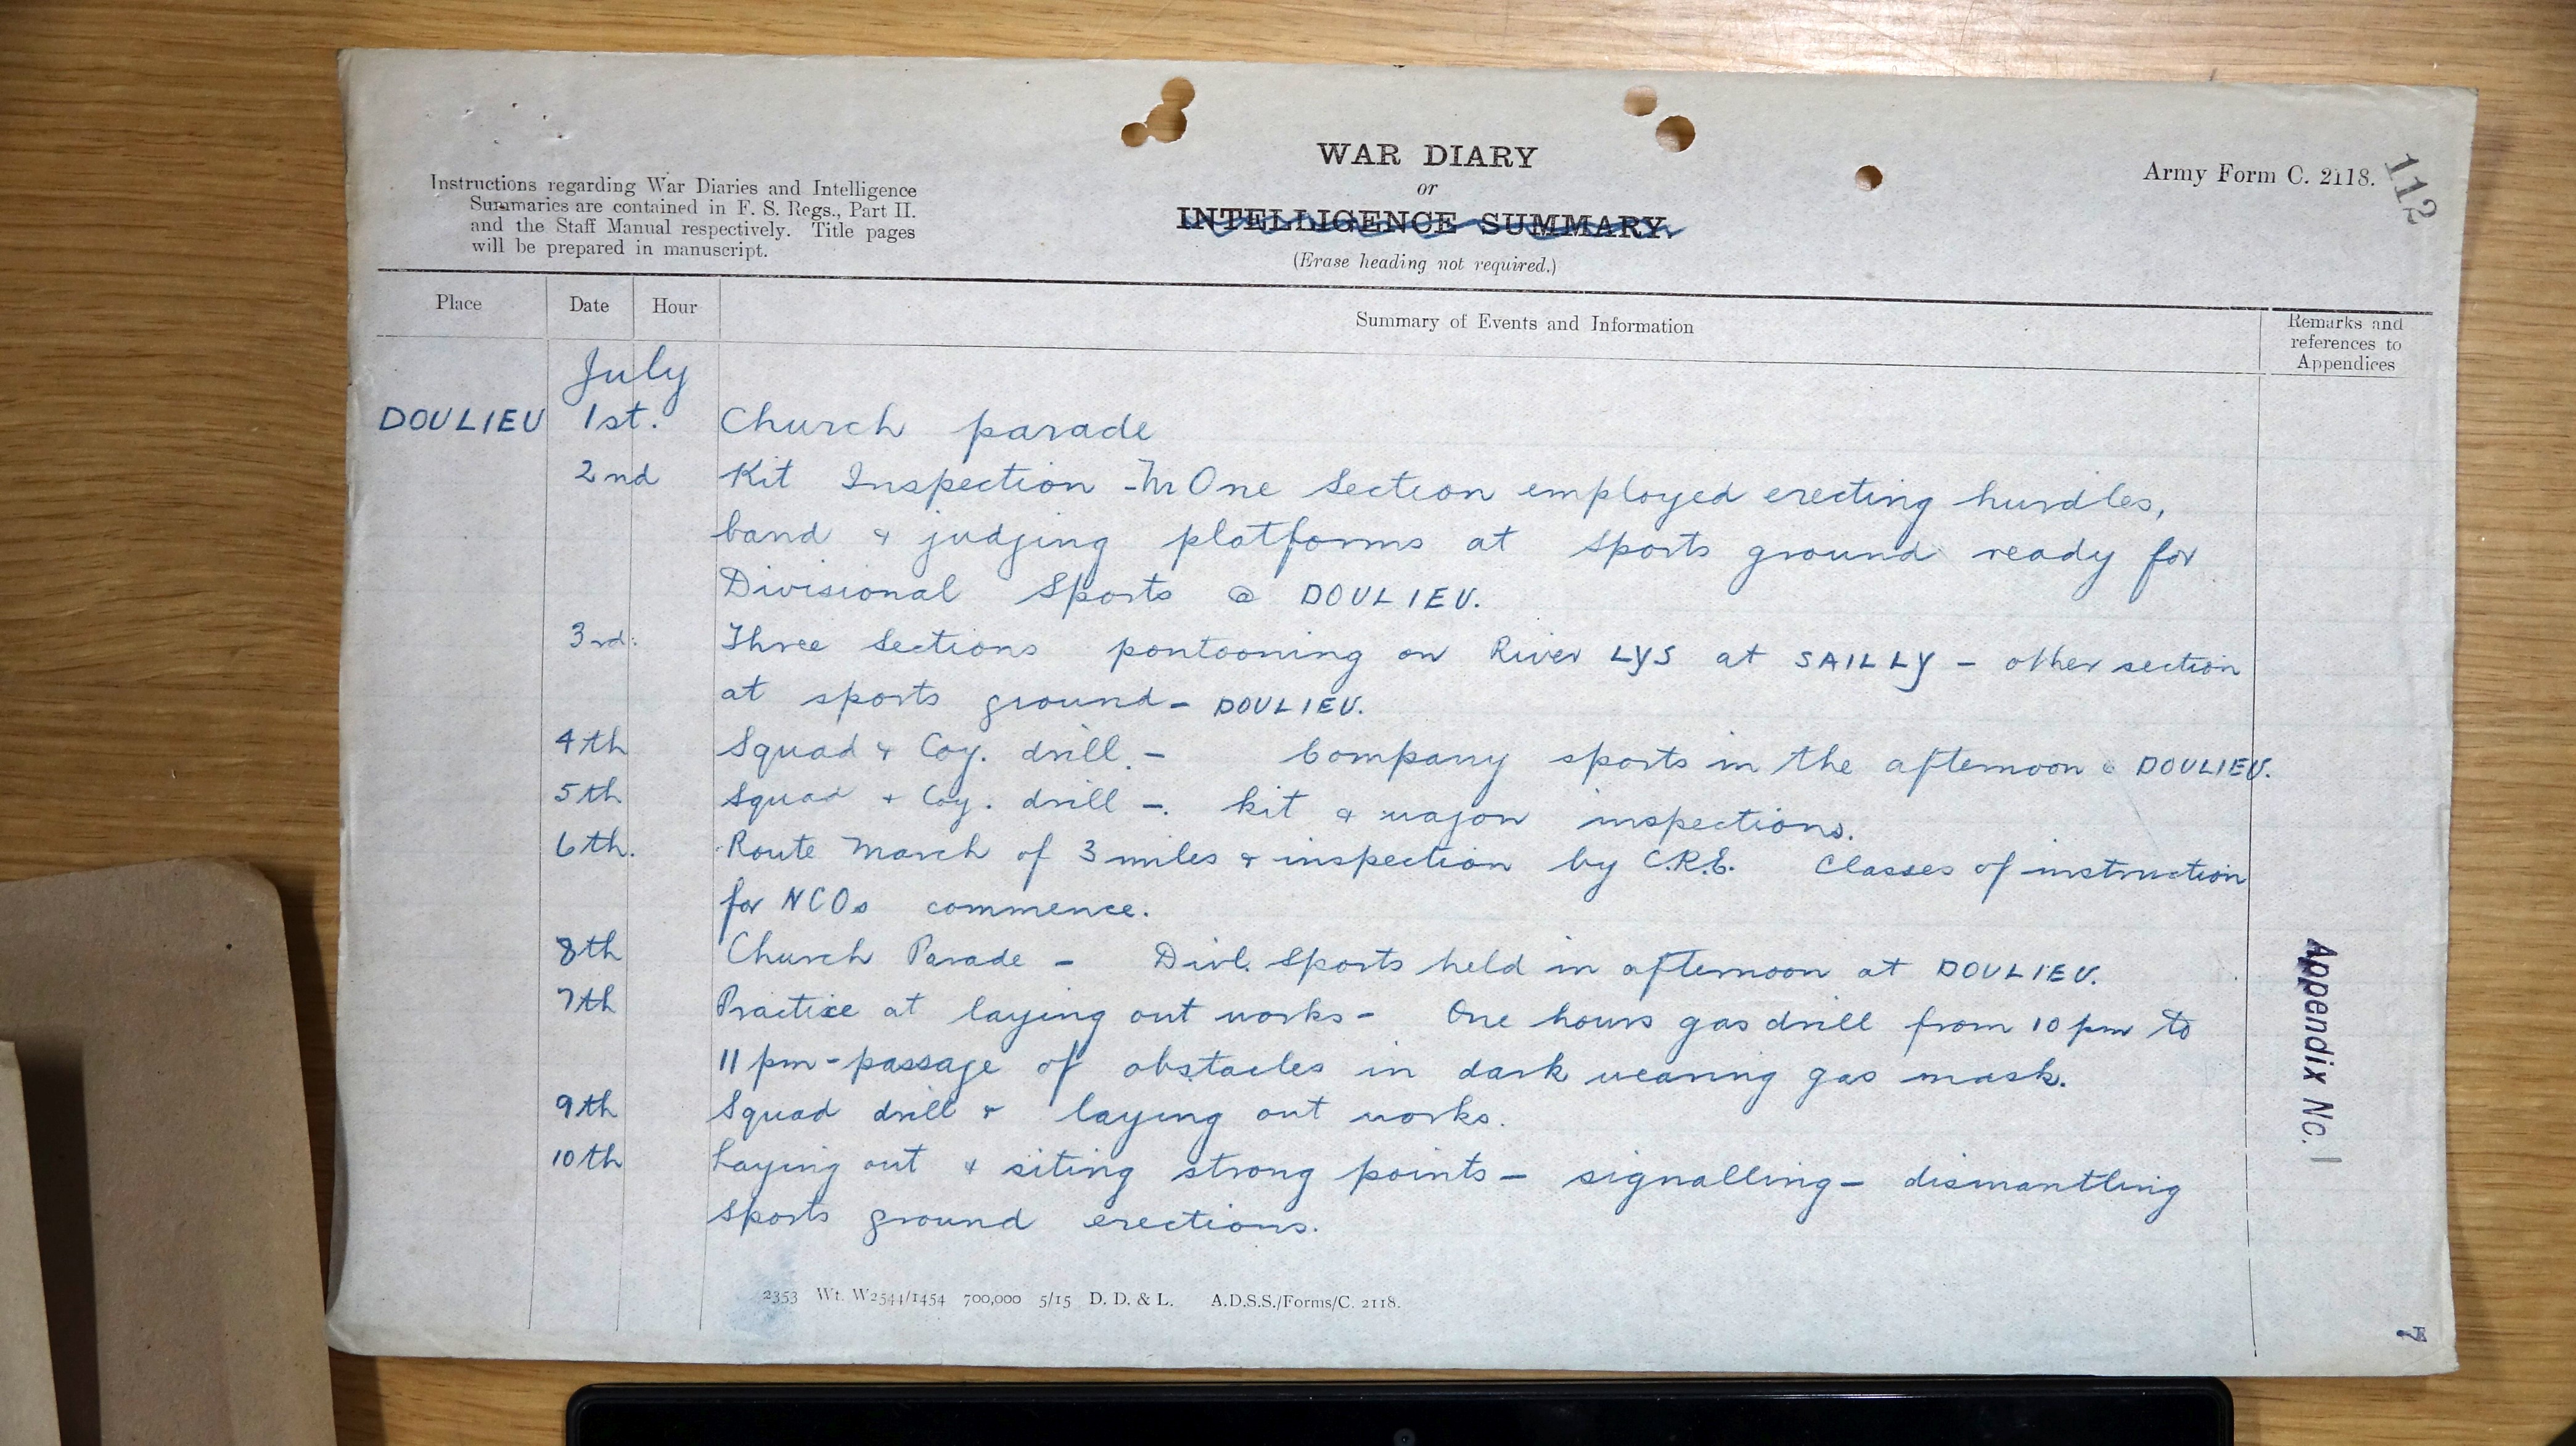 WAR DIARY
or
INTELLIGENCE SUMMARY.
(Erase heading not required.)
Army Form C. 2118.
112
Instructions regarding War Diaries and Intelligence
Summaries are contained in F. S. Regs., Part II.
and the Staff Manual respectively. Title pages
will be prepared in manuscript.
Place Date Hour Summary of Events and Information Remarks and references to Appendices
July
DOULIEU 1st. Church parade
2nd Kit Inspection - One Section employed erecting hurdles,
band & judging platforms at sports ground ready for
Divisional Sports @ DOULIEU.
3rd. Three Sections pontooning on River LYS at SAILLY - other section
at sports ground - DOULIEU.
4th Squad & Coy. drill. - Company sports in the afternoon @ DOULIEU.
5th Squad + Coy. drill -. kit & wagon inspections.
6th. Route March of 3 miles & inspection by C.R.E. Classes of instruction
for NCOs commence.
8th Church Parade - Divl. Sports held in afternoon at DOULIEU.
7th Practice at laying out works - One hours gas drill from 10 pm to
11 pm - passage of obstacles in dark wearing gas mask.
9th Squad drill & laying out works.
10th Laying out & siting strong points - signalling - dismantling
sports ground erections.
Appendix No. 1
2353 Wt. W2544/1454 700,000 5/15 D. D. & L. A.D.S.S./Forms/C. 2118.